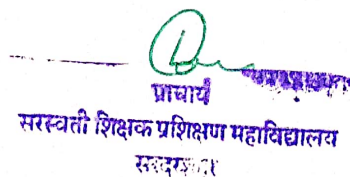 प्राचार्य
सरस्वती शिक्षक प्रशिक्षण महाविद्यालय